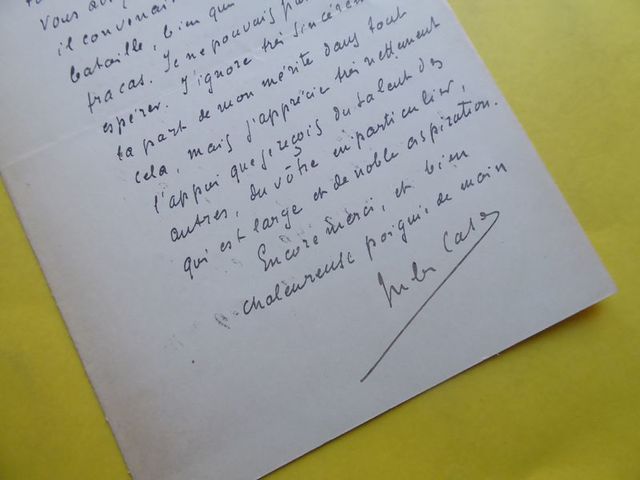 il convenait
bataille, bien que
fracas. Je ne pouvais pas
espérer. J'ignore très sincèrement
la part de mon mérite dans tout
cela, mais j'apprécie très nettement
l'appui que je reçois du talent des
autres, du vôtre en particulier,
qui est large et de noble aspiration.
Encore merci, et bien
chaleureuse poignée de main
Jules Case